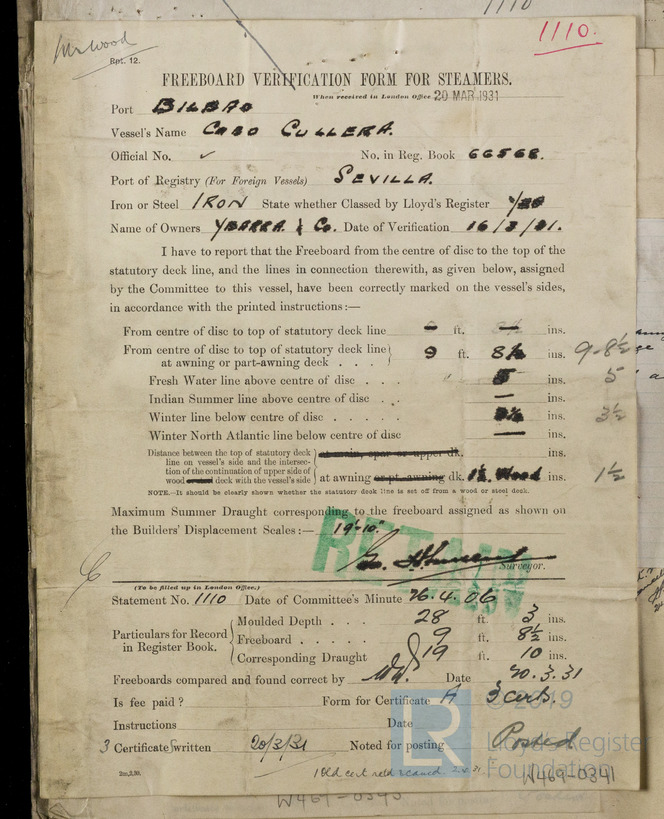 1110
1110.
Mr Wood
Rpt. 12.
FREEBOARD VERIFICATION FORM FOR STEAMERS.
When received in London Office 20 MAR 1931
Port BILBAO
Vessel's Name CABO CULLERA.
Official No. ✓ No. in Reg. Book 66568.
Port of Registry (For Foreign Vessels) SEVILLA.
Iron or Steel IRON State whether Classed by Lloyd's Register
Name of Owners YBARRA & Co. Date of Verification 16/3/31.
I have to report that the Freeboard from the centre of disc to the top of the
statutory deck line, and the lines in connection therewith, as given below, assigned
by the Committee to this vessel, have been correctly marked on the vessel's sides,
in accordance with the printed instructions:—
From centre of disc to top of statutory deck line — ft. — ins.
From centre of disc to top of statutory deck line
at awning or part-awning deck . . . 9 ft. 8½ ins. 9-8½
Fresh Water line above centre of disc . . . 5 ins. 5
Indian Summer line above centre of disc . . — ins.
Winter line below centre of disc . . . . . 3½ ins. 3½
Winter North Atlantic line below centre of disc — ins.
Distance between the top of statutory deck
line on vessel's side and the intersec-
tion of the continuation of upper side of
wood deck with the vessel's side
at main, spar or upper dk. ins.
at awning or pt. awning dk. 1½ Wood ins. 1½
NOTE.—It should be clearly shown whether the statutory deck line is set off from a wood or steel deck.
Maximum Summer Draught corresponding to the freeboard assigned as shown on
the Builders' Displacement Scales:— 19'-10"
RETAIN
Surveyor.
(To be filled up in London Office.)
Statement No. 1110 Date of Committee's Minute 26.4.06
Particulars for Record
in Register Book.
Moulded Depth . . . . 28 ft. 3 ins.
Freeboard . . . . . 9 ft. 8½ ins.
Corresponding Draught 19 ft. 10 ins.
Freeboards compared and found correct by Date 20.3.31
Is fee paid? Form for Certificate A 3 Certs.
Instructions Date
3 Certificates written 20/3/31 Noted for posting Posted
2m,3,30.
1 Old cert retd & cancd.
© 2019
Lloyd's Register
Foundation
LR
W469-0341
W469-0340